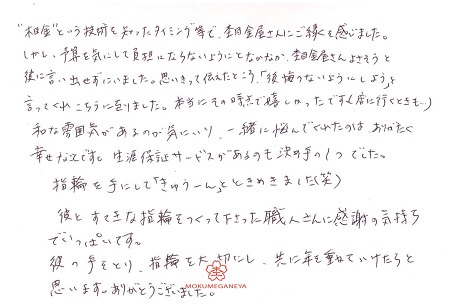 "木目金"という技術を知ったタイミング等で、杢目金屋さんにご縁を感じました。
しかし、予算を気にして負担にならないようにとなかなか、杢目金屋さんよさそうと
彼に言い出せずにいました。思いきって伝えたところ「後悔のないようにしよう」と
言ってくれ こちらに至りました。本当にその時点で嬉しかったです(店に行くときも…)
和な雰囲気があるのが気にいり、一緒に悩んでくれたのは ありがたく
幸せな次です。生涯保証サービスがあるのも決め手の1つでした。
指輪を手にして「きゅうーん」とときめきました(笑)
彼と すてきな指輪をつくって下さった職人さんに感謝の気持ち
でいっぱいです。
彼の手をとり、指輪を大切にし、共に年を重ねていけたらと
思います。ありがとうございました。
MOKUMEGANEYA